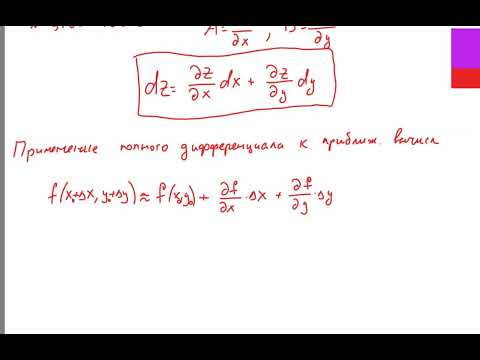 A = ∂x , ∂y
dz = ∂z/∂x dx + ∂z/∂y dy
Применение полного дифференциала к приближ. вычисл
f(x₀+Δx, y₀+Δy) ≈ f(x₀,y₀) + ∂f/∂x · Δx + ∂f/∂y · Δy